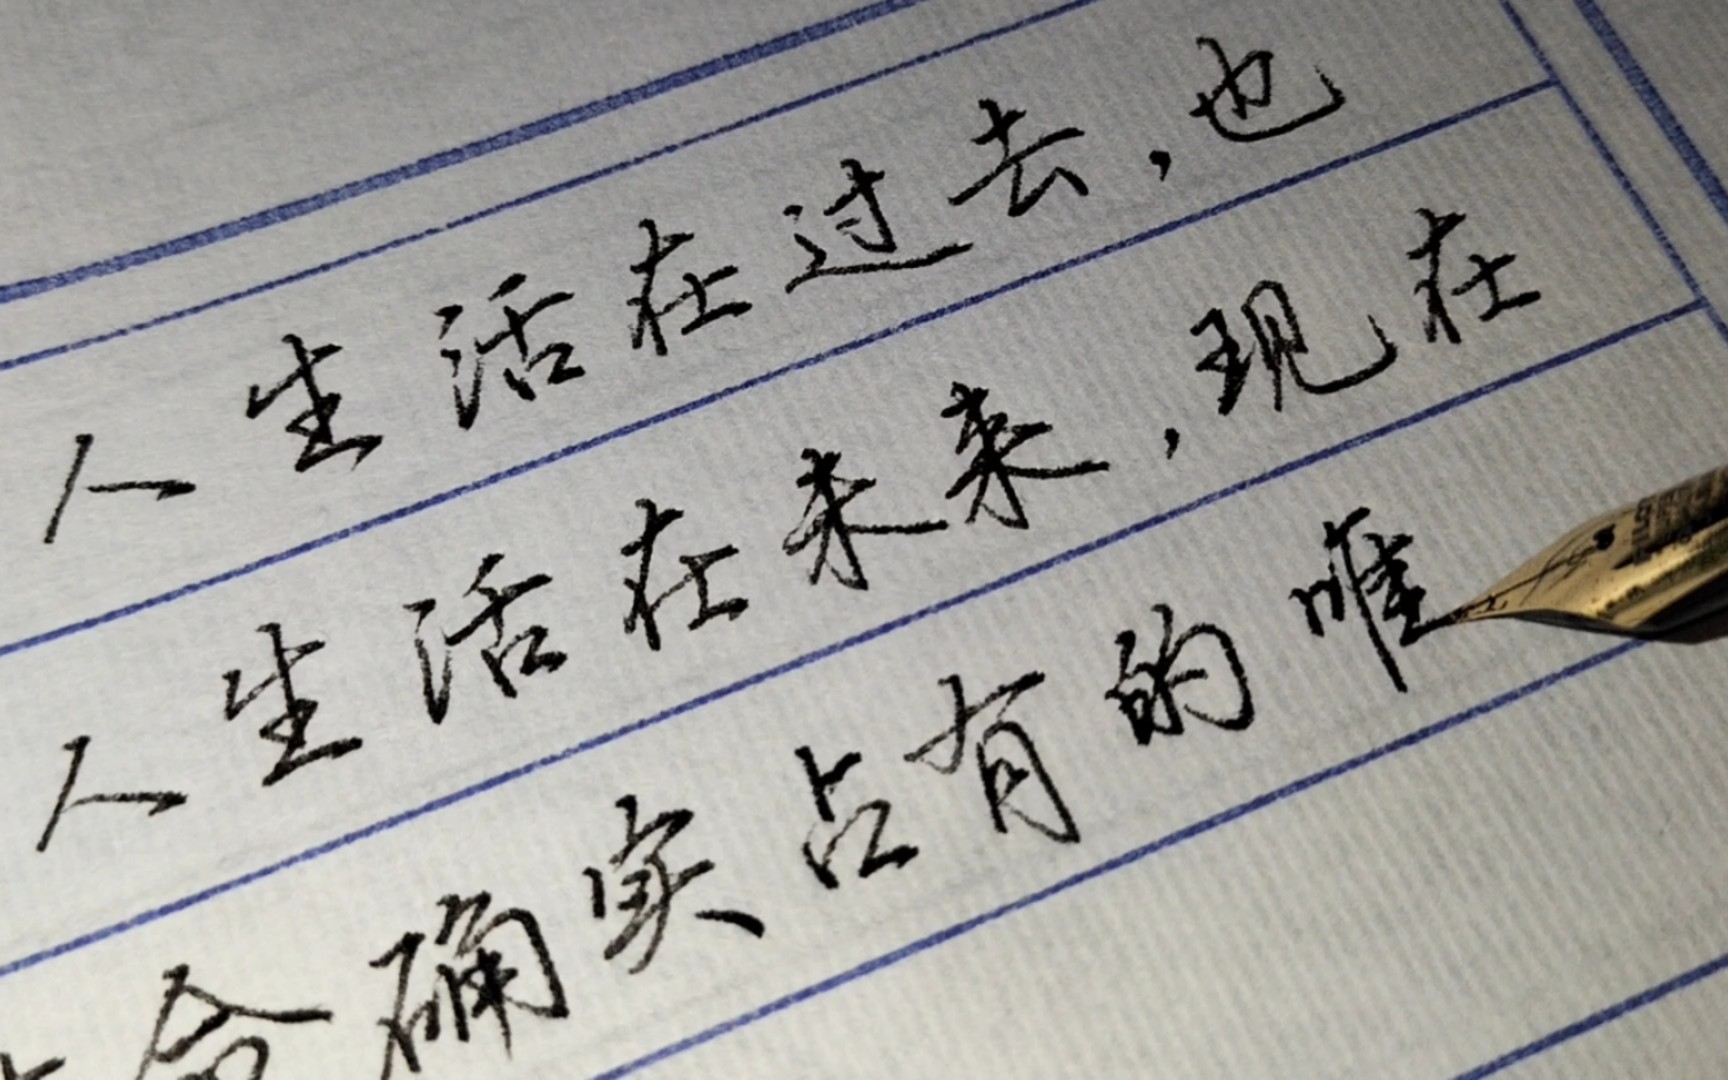 人生活在过去,也
人生活在未来,现在
命确实占有的唯